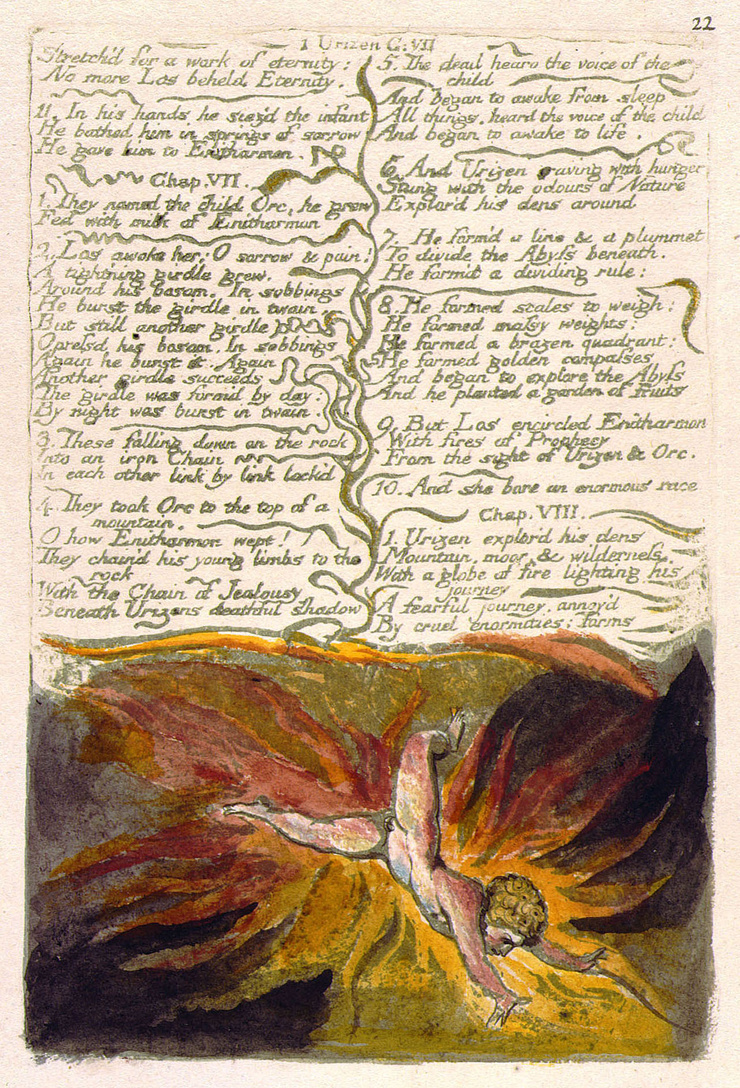 22
1 Urizen C: VII
Stretch'd for a work of eternity:
No more Los beheld Eternity.
11. In his hands he siez'd the infant
He bathed him in springs of sorrow
He gave him to Enitharmon.
Chap. VII.
1. They named the child Orc, he grew
Fed with milk of Enitharmon
2. Los awoke her; O sorrow & pain!
A tightning girdle grew,
Around his bosom. In sobbings
He burst the girdle in twain.
But still another girdle
Opress'd his bosom. In sobbings
Again he burst it. Again
Another girdle succeeds
The girdle was form'd by day:
By night was burst in twain.
3. These falling down on the rock
Into an iron Chain
In each other link by link lock'd
4. They took Orc to the top of a
mountain.
O how Enitharmon wept!
They chain'd his young limbs to the
rock
With the Chain of Jealousy
Beneath Urizens deathful shadow
5. The dead heard the voice of the
child
And began to awake from sleep
All things. heard the voice of the child
And began to awake to life.
6. And Urizen craving with hunger
Stung with the odours of Nature
Explor'd his dens around
7. He form'd a line & a plummet
To divide the Abyss beneath.
He form'd a dividing rule:
8. He formed scales to weigh;
He formed massy weights;
He formed a brazen quadrant;
He formed golden compasses
And began to explore the Abyss
And he planted a garden of fruits
9. But Los encircled Enitharmon
With fires of Prophecy
From the sight of Urizen & Orc.
10. And she bore an enormous race
Chap. VIII.
1. Urizen explor'd his dens
Mountain, moor, & wilderness,
With a globe of fire lighting his
journey
A fearful journey, annoy'd
By cruel enormities: forms